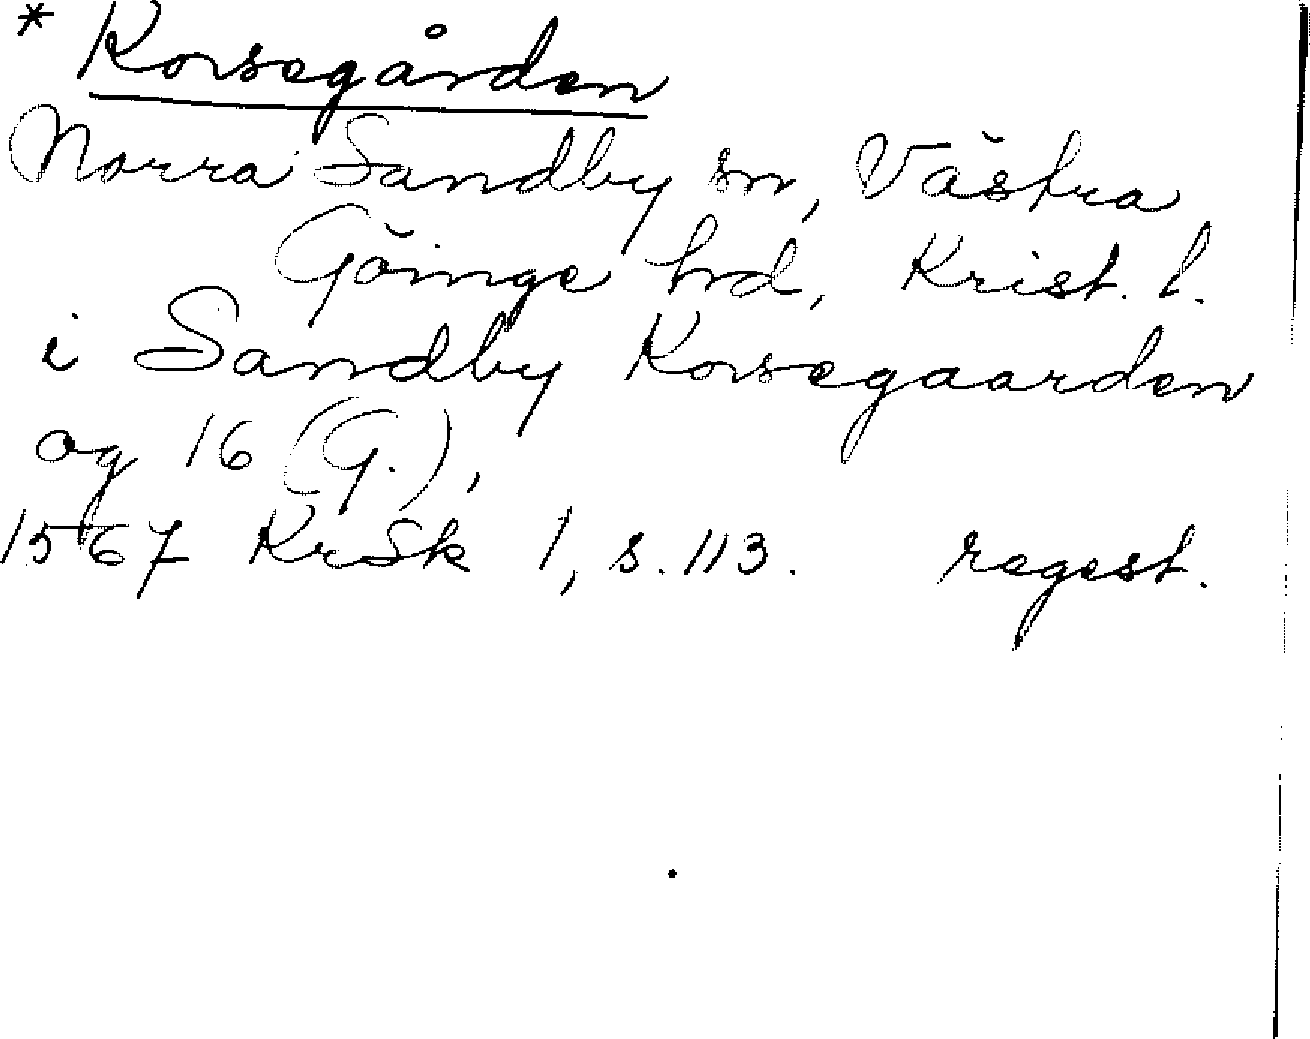 * Korsegården
Norra Sandby sn, Västra
Göinge hrd, Krist. l.
i Sandby Korsegaarden
og 16 (G.),
1567 KrSk 1, s. 113. regest.